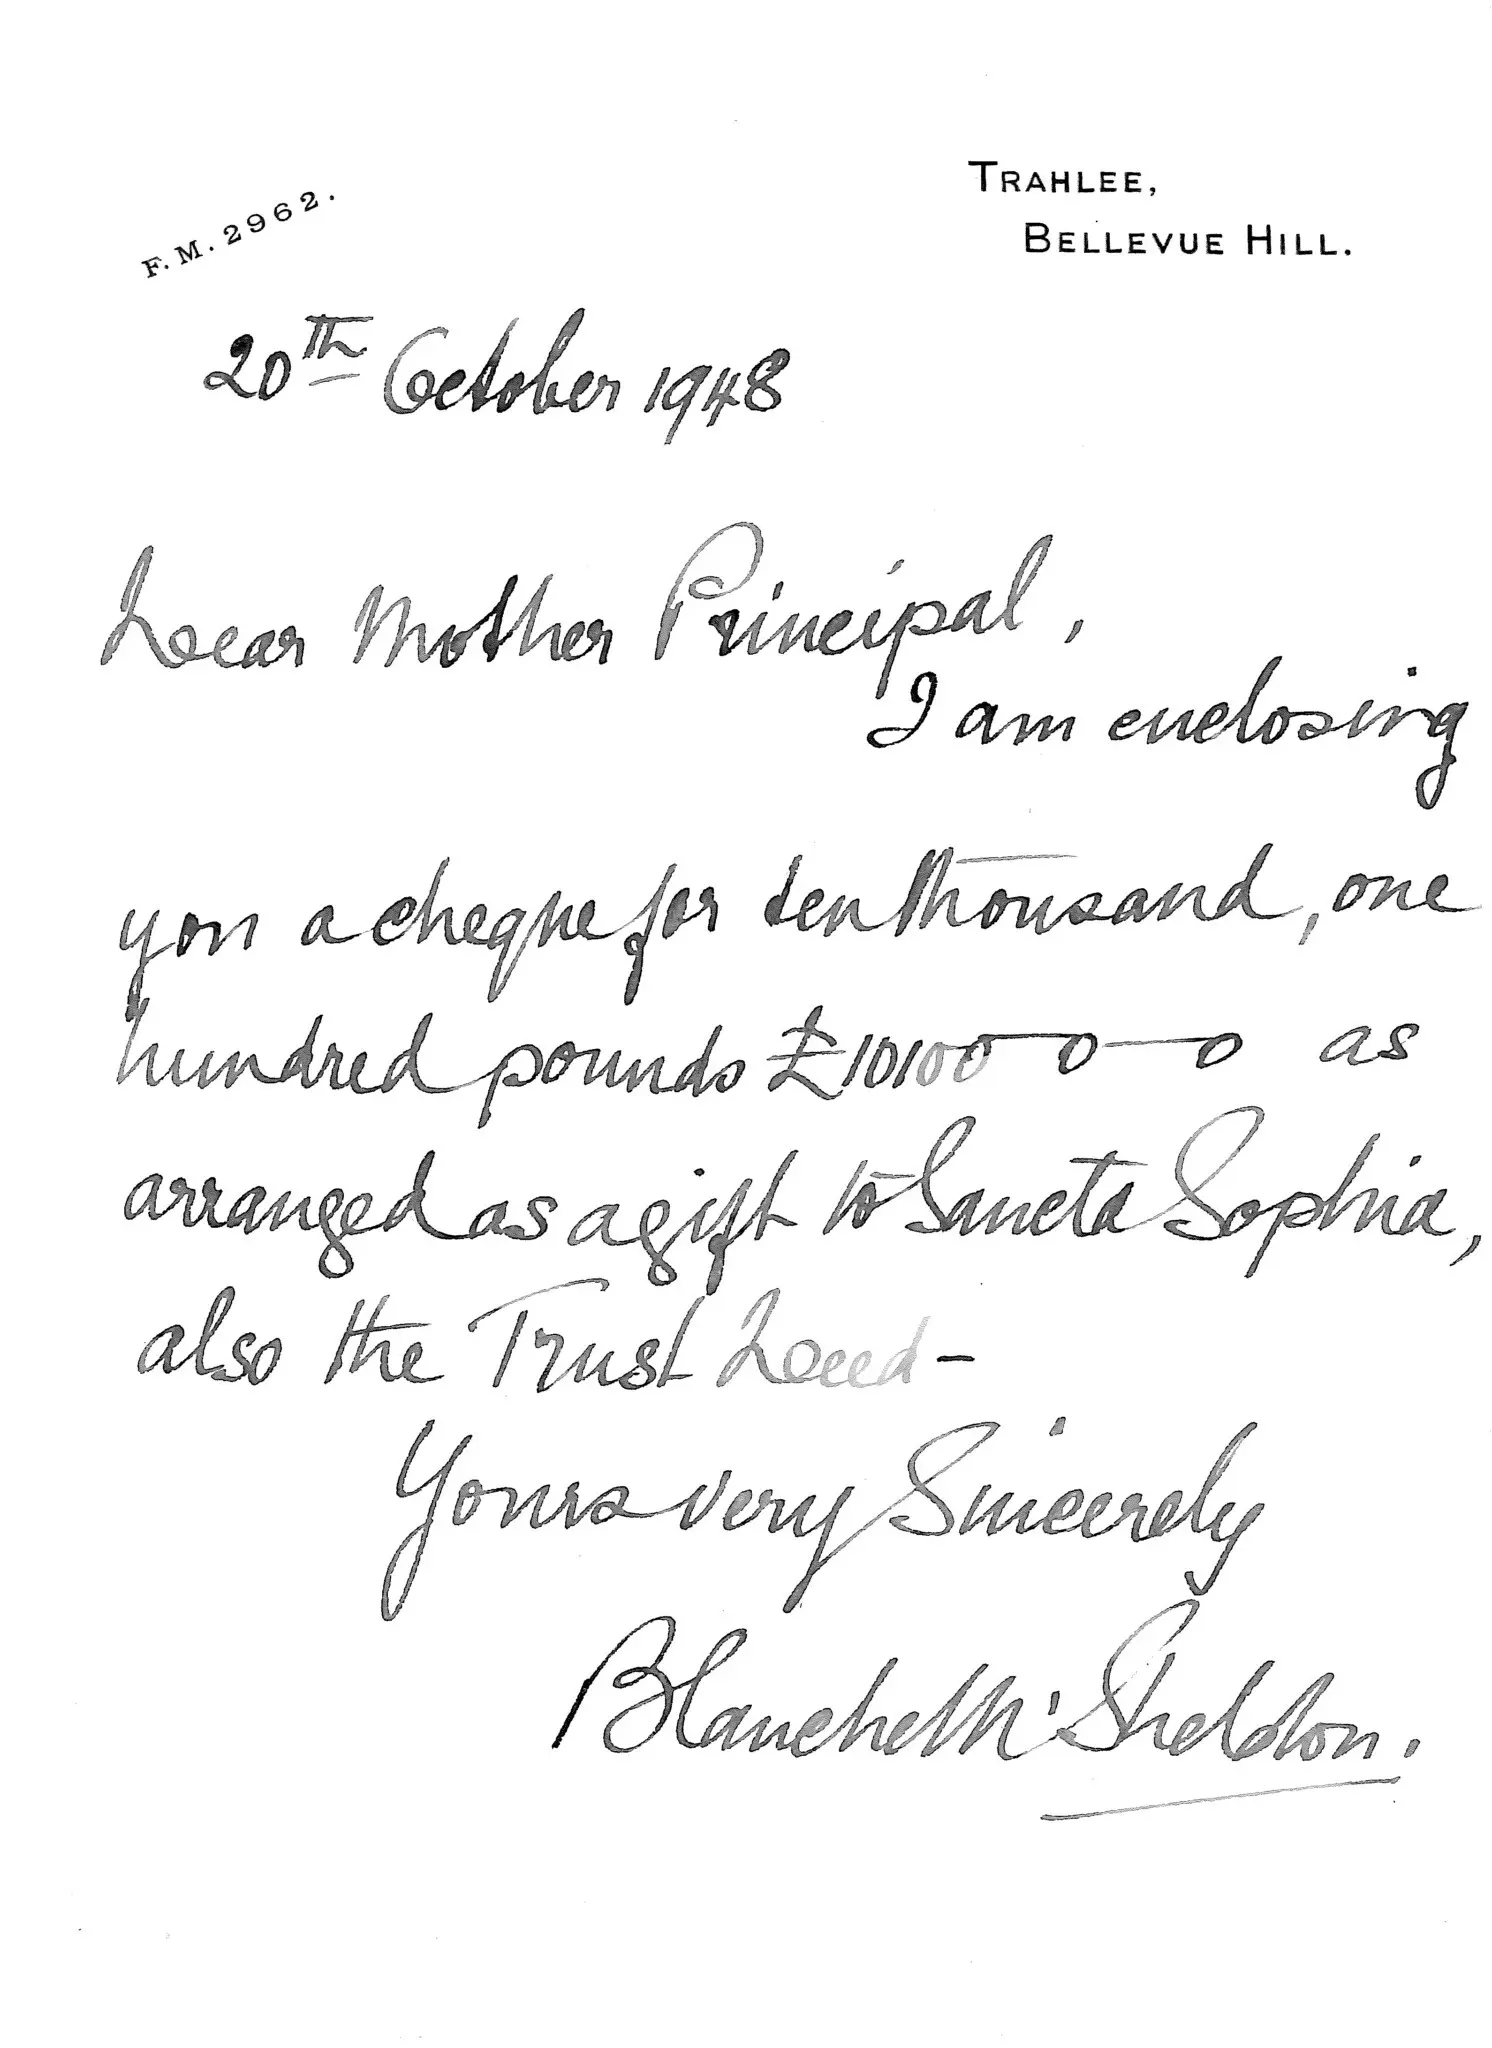 F. M. 2962.
TRAHLEE,
BELLEVUE HILL.
20th October 1948
Dear Mother Principal,
I am enclosing
you a cheque for ten thousand, one
hundred pounds £10100—0—0 as
arranged as a gift to Sancta Sophia,
also the Trust Deed—
Yours very Sincerely
Blanche M' Sheldon.